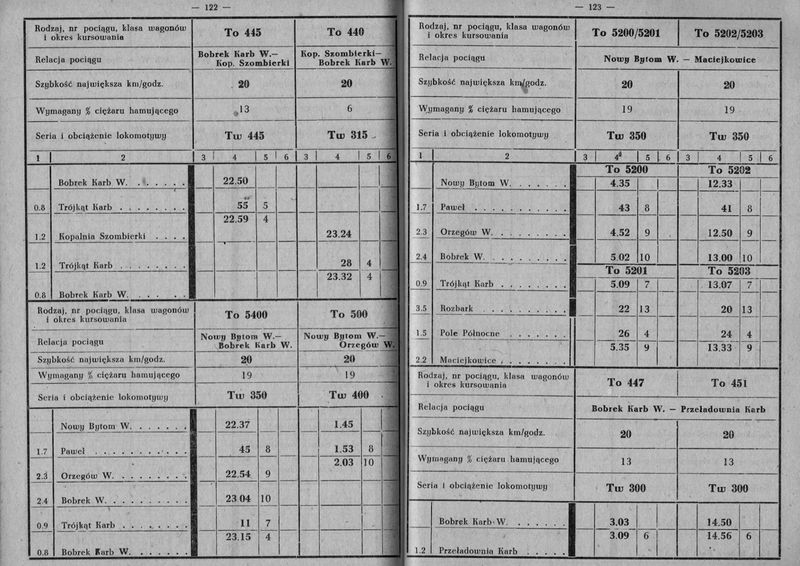 — 122 —
Rodzaj, nr pociągu, klasa wagonów i okres kursowania To 445 To 440
Relacja pociągu Bobrek Karb W.— Kop. Szombierki Kop. Szombierki— Bobrek Karb W.
Szybkość największa km/godz. 20 20
Wymagany % ciężaru hamującego 13 6
Seria i obciążenie lokomotywy Tw 445 Tw 315
1 2 3 4 5 6 3 4 5 6
Bobrek Karb W. . . . . . . 22.50
0.8 Trójkąt Karb . . . . . . . . 55 5
22.59 4
1.2 Kopalnia Szombierki . . . . 23.24
1.2 Trójkąt Karb . . . . . . . . 28 4
23.32 4
0.8 Bobrek Karb W. . . . . .
Rodzaj, nr pociągu, klasa wagonów i okres kursowania To 5400 To 500
Relacja pociągu Nowy Bytom W.— Bobrek Karb W. Nowy Bytom W.— Orzegów W.
Szybkość największa km/godz. 20 20
Wymagany % ciężaru hamującego 19 19
Seria i obciążenie lokomotywy Tw 350 Tw 400
Nowy Bytom W. . . . . . . 22.37 1.45
1.7 Paweł . . . . . . . . . . . 45 8 1.53 8
2.03 10
2.3 Orzegów W. . . . . . . . . 22.54 9
2.4 Bobrek W. . . . . . . . . . 23 04 10
0.9 Trójkąt Karb . . . . . . . . 11 7
23.15 4
0.8 Bobrek Karb W. . . . . . .
— 123 —
Rodzaj, nr pociągu, klasa wagonów i okres kursowania To 5200/5201 To 5202/5203
Relacja pociągu Nowy Bytom W. — Maciejkowice
Szybkość największa km/godz. 20 20
Wymagany % ciężaru hamującego 19 19
Seria i obciążenie lokomotywy Tw 350 Tw 350
1 2 3 4 5 6 3 4 5 6
To 5200 To 5202
Nowy Bytom W. . . . . . . 4.35 12.33
1.7 Paweł . . . . . . . . . . . 43 8 41 8
2.3 Orzegów W. . . . . . . . . 4.52 9 12.50 9
2.4 Bobrek W. . . . . . . . . . 5.02 10 13.00 10
To 5201 To 5203
0.9 Trójkąt Karb . . . . . . . . 5.09 7 13.07 7
3.5 Rozbark . . . . . . . . . 22 13 20 13
1.5 Pole Północne . . . . . . . 26 4 24 4
5.35 9 13.33 9
2.2 Maciejkowice . . . . . . . .
Rodzaj, nr pociągu, klasa wagonów i okres kursowania To 447 To 451
Relacja pociągu Bobrek Karb W. — Przeładownia Karb
Szybkość największa km/godz. 20 20
Wymagany % ciężaru hamującego 13 13
Seria i obciążenie lokomotywy Tw 300 Tw 300
Bobrek Karb W. . . . . . . 3.03 14.50
3.09 6 14.56 6
1.2 Przeładownia Karb . . . . .